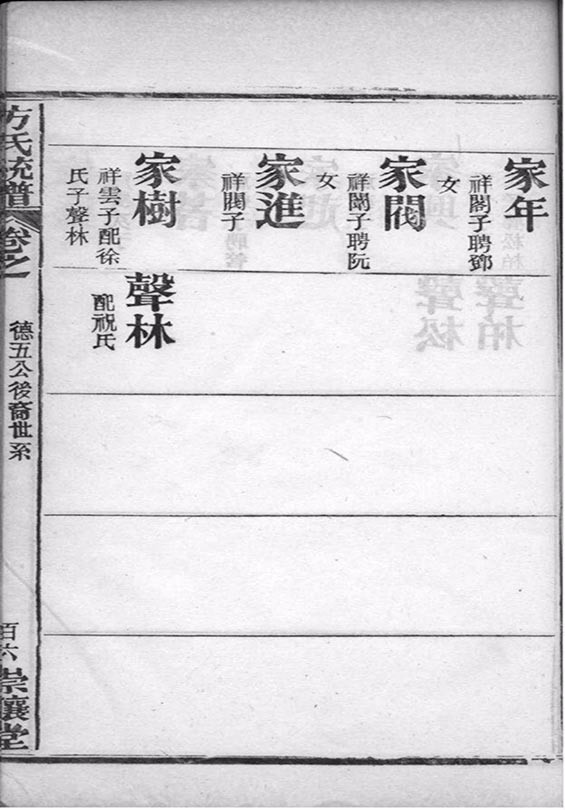 家年
祥閣子聘鄧
女
家閥
祥閣子聘阮
女
家進
祥閥子
家樹
祥雲子配徐
氏子聲林
聲林
配祝氏
方氏統譜
卷之
德五公後裔世系
百六
崇讓堂